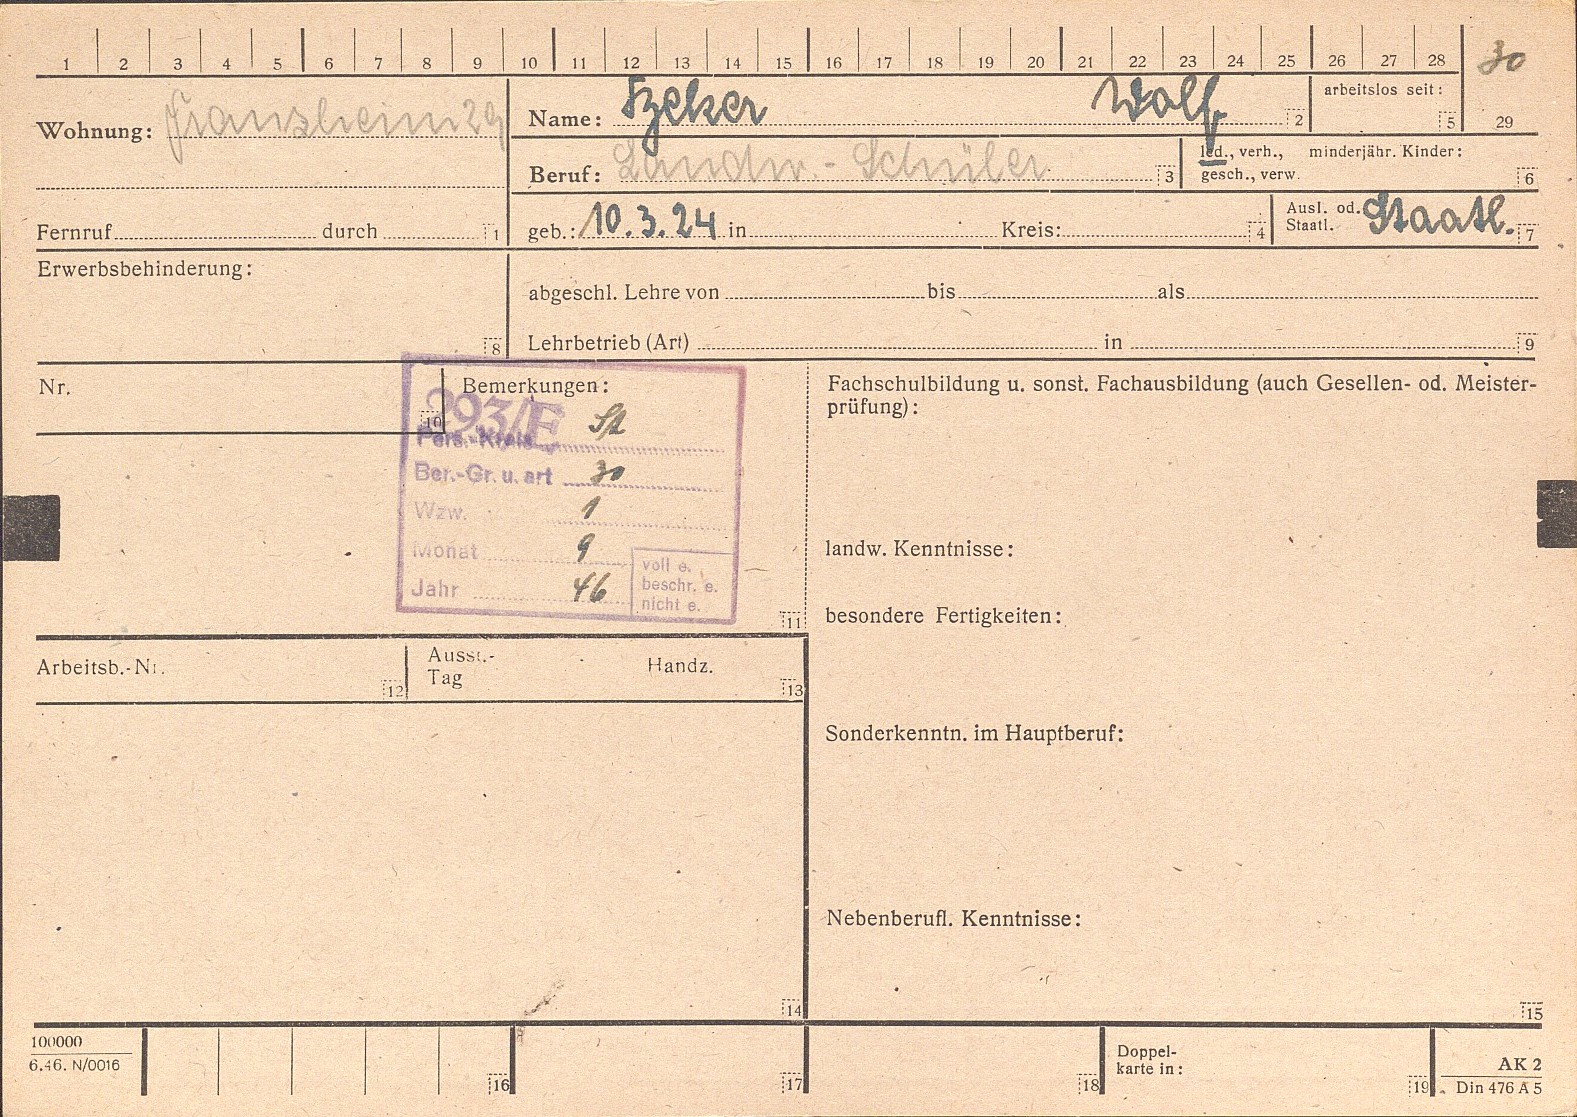 1 2 3 4 5 6 7 8 9 10 11 12 13 14 15 16 17 18 19 20 21 22 23 24 25 26 27 28 30
Wohnung: Franzheim 29
Name: Szeker Wolf 2
arbeitslos seit: 5
29
Beruf: Landw.-Schüler 3
led., verh., minderjähr. Kinder:
gesch., verw. 6
Fernruf durch 1
geb.: 10.3.24 in Kreis: 4
Ausl. od.
Staatl. Staatl. 7
Erwerbsbehinderung:
8
abgeschl. Lehre von bis als
Lehrbetrieb (Art) in 9
Nr.
10
Bemerkungen:
293/E
Pers.-Kreis
Ber.-Gr. u. art 30
Wzw. 1
Monat 9
Jahr 46
voll e.
beschr. e.
nicht e.
11
Fachschulbildung u. sonst. Fachausbildung (auch Gesellen- od. Meister-
prüfung):
landw. Kenntnisse:
besondere Fertigkeiten:
Arbeitsb.-Nr. 12
Ausst.-
Tag
Handz. 13
Sonderkenntn. im Hauptberuf:
Nebenberufl. Kenntnisse:
14
15
100000
6.46. N/0016
16
17
18
Doppel-
karte in:
19
AK 2
Din 476 A 5